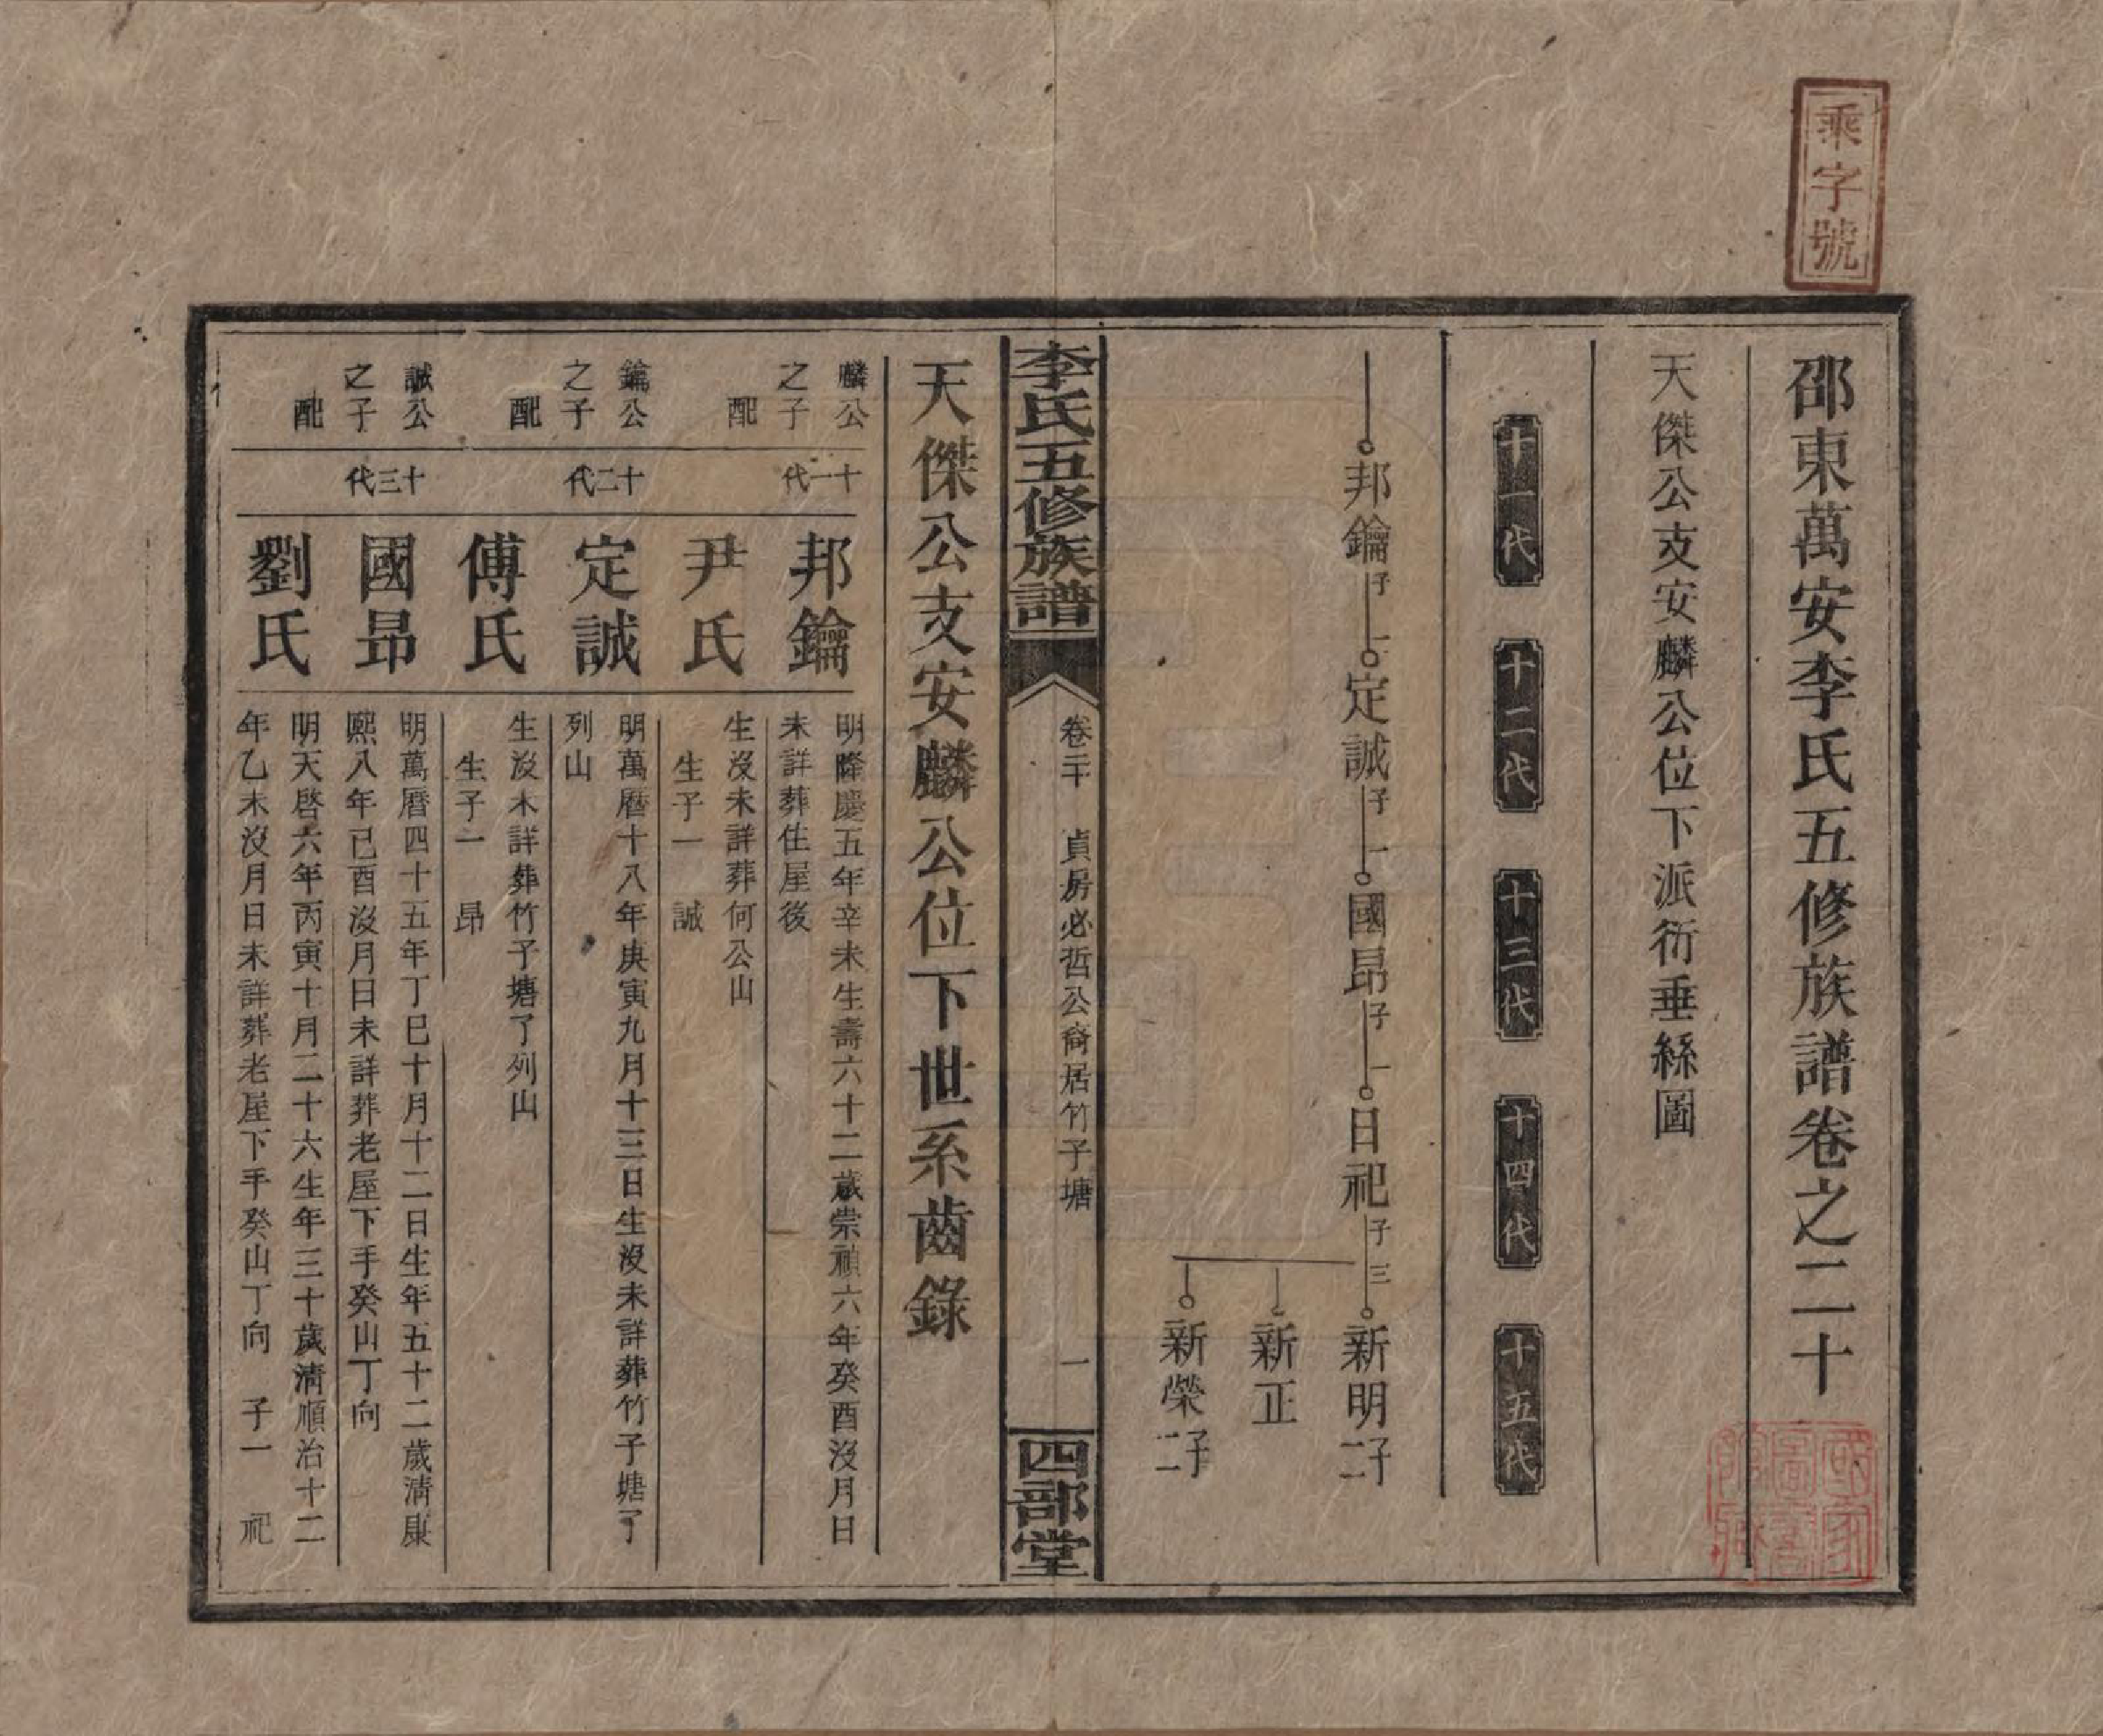 乘字號
邵東萬安李氏五修族譜卷之二十
天傑公支安麟公位下派衍垂絲圖
十一代
十二代
十三代
十四代
十五代
邦鑰子一定誠子一國昂子一日祀子三新明子二
新正
新榮子二
李氏五修族譜
卷二十 貞房必哲公裔居竹子塘 一
四部堂
天傑公支安麟公位下世系齒錄
麟公
之子
配
十一代
邦鑰
明隆慶五年辛未生壽六十二歲崇禎六年癸酉沒月日
未詳葬住屋後
尹氏
生沒未詳葬何公山
生子一 誠
鑰公
之子
配
十二代
定誠
明萬曆十八年庚寅九月十三日生沒未詳葬竹子塘了
列山
傅氏
生沒未詳葬竹子塘了列山
生子一 昂
誠公
之子
配
十三代
國昂
明萬曆四十五年丁巳十月十二日生年五十二歲清康
熙八年已酉沒月日未詳葬老屋下手癸山丁向
劉氏
明天啓六年丙寅十月二十六生年三十歲清順治十二
年乙未沒月日未詳葬老屋下手癸山丁向 子一 祀